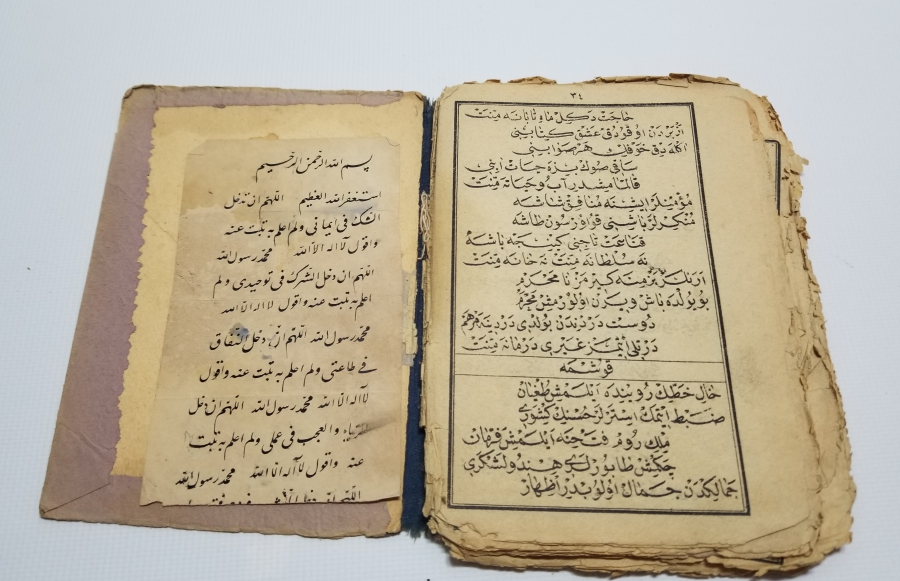 بسم الله الرحمن الرحيم
استغفر الله العظيم اللهم ان دخل
الشك في ايماني ولم اعلم به تبت عنه
واقول لا اله الا الله محمد رسول الله
اللهم ان دخل الشرك في توحيدي ولم
اعلم به تبت عنه واقول لا اله الا الله
محمد رسول الله اللهم ان دخل النفاق
في طاعتي ولم اعلم به تبت عنه واقول
لا اله الا الله محمد رسول الله اللهم ان دخل
والعجب في عملي ولم اعلم به تبت
عنه واقول لا اله الا الله محمد رسول الله
اللهم ان
٣٤
حاجت دكل ماه تابانه منت
اوقودق عشق كتابنى
اكله دق خوفلك هر
ساقى صونك بزه جات
قالتا مشدر آب وحياته منت
مؤمنلر ايشنه منافق شاشه
منكرلر باشنى قراوزسون طاشه
قناعت تاجنى كينجه باشه
نه سلطانه منت نه خانه منت
ارنلر بزمنه كيرمز نا محرم
بويولده باش ويرن اولورمش محرم
دوست دردندن بولدى دردينه مرهم
دردلى ايتمز غيرى درمانه منت
قوشمه
خال خطك روينده ايلمش طغيان
ضبط ايتمك ايستر لر حسنك كشورى
ملك روم فتحنه ايلمش فرمان
چكمش طابورلرى هندو لشكرى
جمالكدن جمال اولوبدر اظهار